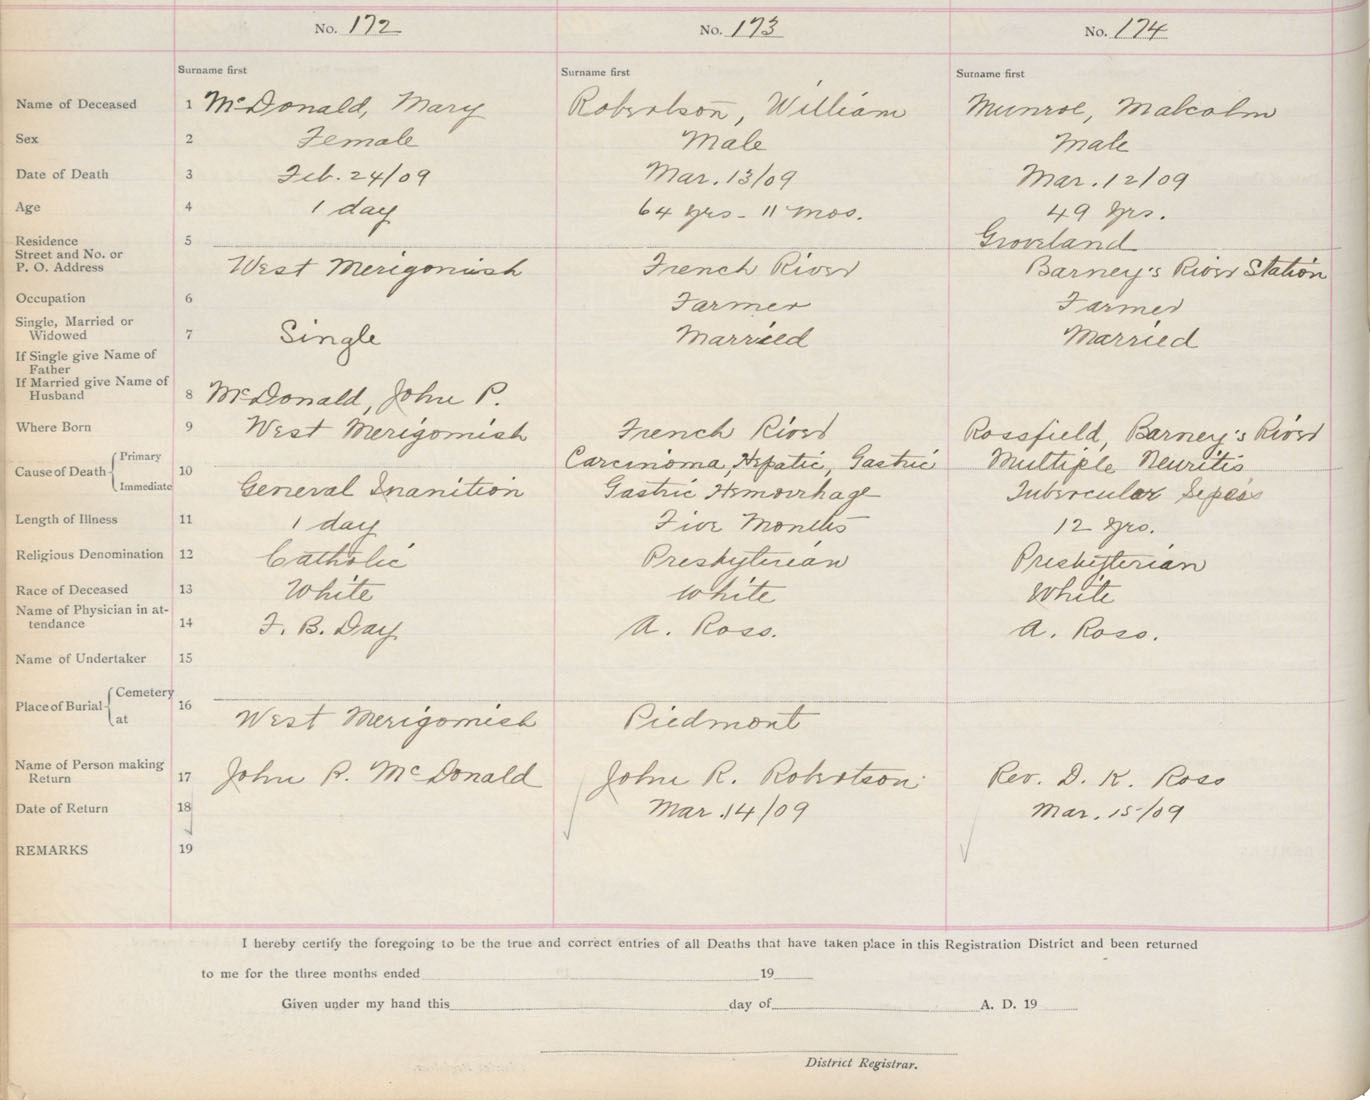 No. 172 No. 173 No. 174
Surname first Surname first Surname first
Name of Deceased 1 McDonald, Mary Robertson, William Munroe, Malcolm
Sex 2 Female Male Male
Date of Death 3 Feb. 24/09 Mar. 13/09 Mar. 12/09
Age 4 1 day 64 yrs - 11 mos. 49 yrs.
Residence 5 Groveland
Street and No. or
P. O. Address West Merigomish French River Barney's River Station
Occupation 6 Farmer Farmer
Single, Married or
Widowed 7 Single Married Married
If Single give Name of
Father
If Married give Name of
Husband 8 McDonald, John P.
Where Born 9 West Merigomish French River Rossfield, Barney's River
Cause of Death Primary 10 Carcinoma Hepatic, Gastric Multiple Neuritis
Immediate General Inanition Gastric Hemorrhage Tubercular
Length of Illness 11 1 day Five Months 12 yrs.
Religious Denomination 12 Catholic Presbyterian Presbyterian
Race of Deceased 13 White White White
Name of Physician in at-
tendance 14 F. B. Day A. Ross. A. Ross.
Name of Undertaker 15
Place of Burial Cemetery 16
at West Merigomish Piedmont
Name of Person making
Return 17 John P. McDonald John R. Robertson Rev. D. K. Ross
Date of Return 18 Mar. 14/09 Mar. 15/09
REMARKS 19
I hereby certify the foregoing to be the true and correct entries of all Deaths that have taken place in this Registration District and been returned
to me for the three months ended 19
Given under my hand this day of A. D. 19
District Registrar.